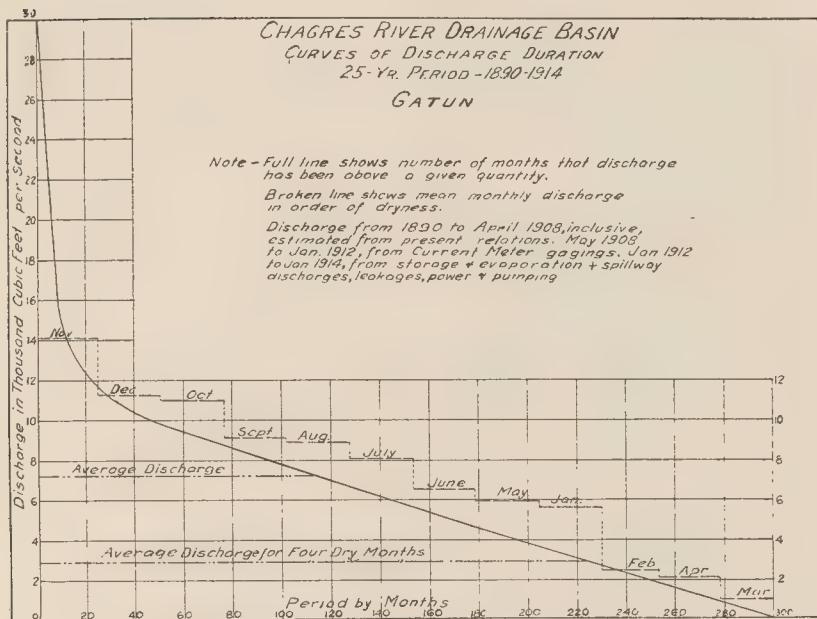 CHAGRES RIVER DRAINAGE BASIN
CURVES OF DISCHARGE DURATION
25-YR. PERIOD-1890-1914
GATUN
Note-Full line shows number of months that discharge
has been above a given quantity.
Broken line shows mean monthly discharge
in order of dryness.
Discharge from 1890 to April 1908, inclusive,
estimated from present relations. May 1908
to Jan. 1912, from Current Meter gagings. Jan 1912
to Jan 1914, from storage + evaporation + spillway
discharges, leakages, power + pumping
Discharge in Thousand Cubic Feet per Second
30
28
26
24
22
20
18
16
14
12
10
8
6
4
2
0
Nov
Dec
Oct
Sept
Aug.
July
June
May
Jan.
Feb
Apr
Mar
Average Discharge
Average Discharge for Four Dry Months
12
10
8
6
4
2
Period by Months
20 40 60 80 100 120 140 160 180 200 220 240 260 280 300